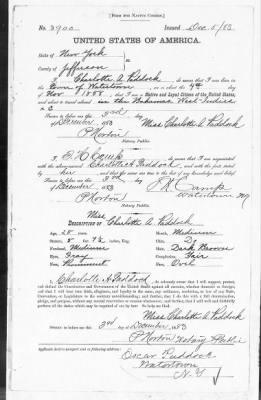 [FORM FOR NATIVE CITIZEN.]
No. 3900 Issued Dec. 5/83
UNITED STATES OF AMERICA.
State of New York
County of Jefferson
I, Charlotte A. Paddock, do swear that I was born in
the town of Watertown on or about the 4th day
of Nov, 1855; that I am a Native and Loyal Citizen of the United States,
and about to travel abroad in the Bahamas West Indies
Sworn to before me this 3rd day
of December, 1883 Miss Charlotte A. Paddock
P Horton
Notary Public.
I, Camp, do swear that I am acquainted
with the above-named Charlotte A Paddock, and with the facts stated by
her and that the same are true to the best of my knowledge and belief.
Sworn to before me this 3rd day
of December, 1883 Camp
P Horton Watertown NY
Notary Public.
Miss
DESCRIPTION OF Charlotte A. Paddock
Age, 28 years. Mouth, Medium
Stature, 5 feet inches, Eng. Chin,
Forehead, Medium Hair, Dark Brown
Eyes, Gray Complexion, Fair
Nose, Prominent Face, Oval
I, Charlotte A Paddock, do solemnly swear that I will support, protect,
and defend the Constitution and Government of the United States against all enemies, whether domestic or foreign;
and that I will bear true faith, allegiance, and loyalty to the same, any ordinance, resolution, or law of any State,
Convention, or Legislature to the contrary notwithstanding; and further, that I do this with a full determination,
pledge, and purpose, without any mental reservation or evasion whatsoever; and further, that I will well and faithfully
perform all the duties which may be required of me by law: So help me God.
Miss Charlotte A. Paddock
Sworn to before me this 3rd day of December, 1883
P Horton Notary Public
Applicant desires passport sent to following address:
Oscar Paddock
Watertown
N.Y.